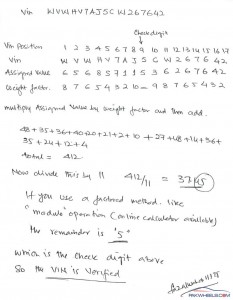 Vin WVWHV7AJSCW267642
Checkdigit
Vin Position 1 2 3 4 5 6 7 8 9 10 11 12 13 14 15 16 17
Vin W V W H V 7 A J 5 C W 2 6 7 6 4 2
Assigned Value 6 5 6 8 5 7 1 1 5 3 6 2 6 7 6 4 2
Weight factor. 8 7 6 5 4 3 2 10 - 9 8 7 6 5 4 3 2
multiply Assigned Value by weight factor and then add.
48+35+36+40+20+21+2+10 + 27+48+14+36+
35+24+12+4
total = 412
Now divide this by 11 412/11 = 37.45
If you use a factored method. like
"modulo" operation (online calculator available)
the remainder is '5'
which is the check digit above
So the VIN is Verified
PAKWHEELS.COM